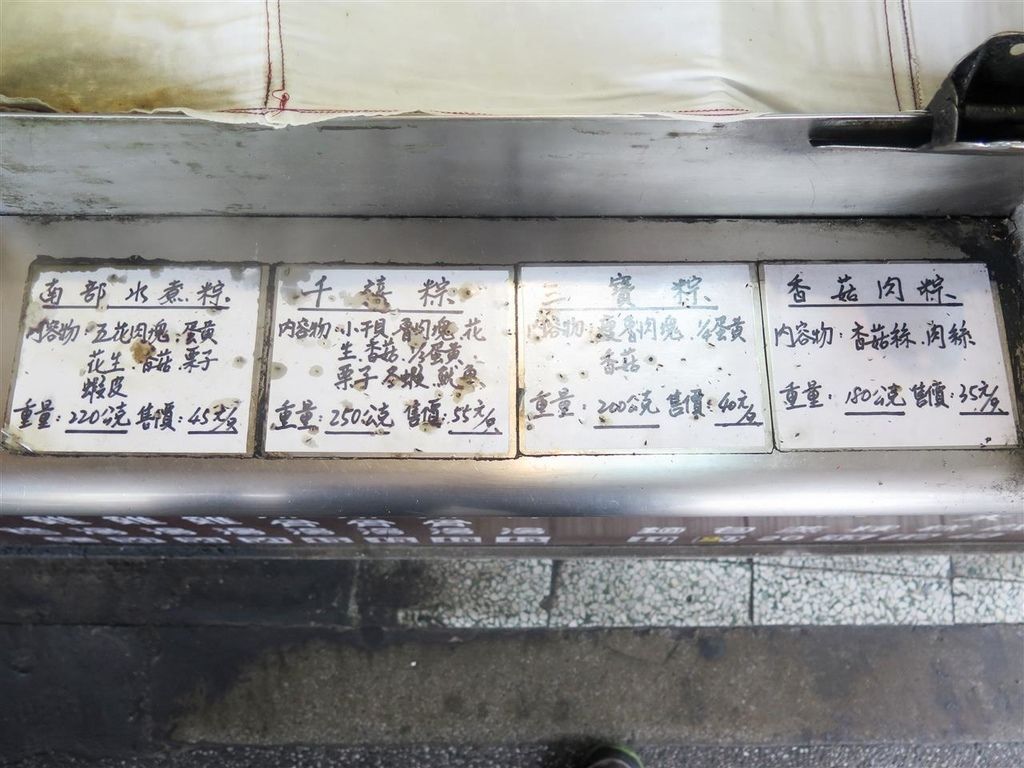 南部水煮粽
內容物：五花肉塊．蛋黃
花生．香菇．栗子
蝦皮
重量：220公克 售價：45元/台
千禧粽
內容物：小干貝．魯肉塊．花
生．香菇．半蛋黃．
栗子．冬蝦．魷魚
重量：250公克 售價：55元/台
三寶粽
內容物：瘦魯肉塊．半蛋黃
香菇
重量：200公克 售價：40元/台
香菇肉粽
內容物：香菇絲．肉絲
重量：180公克 售價：35元/台